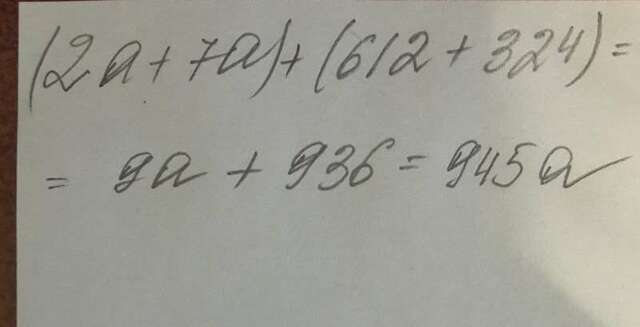 (2a + 7a) + (612 + 324) =
= 9a + 936 = 945a